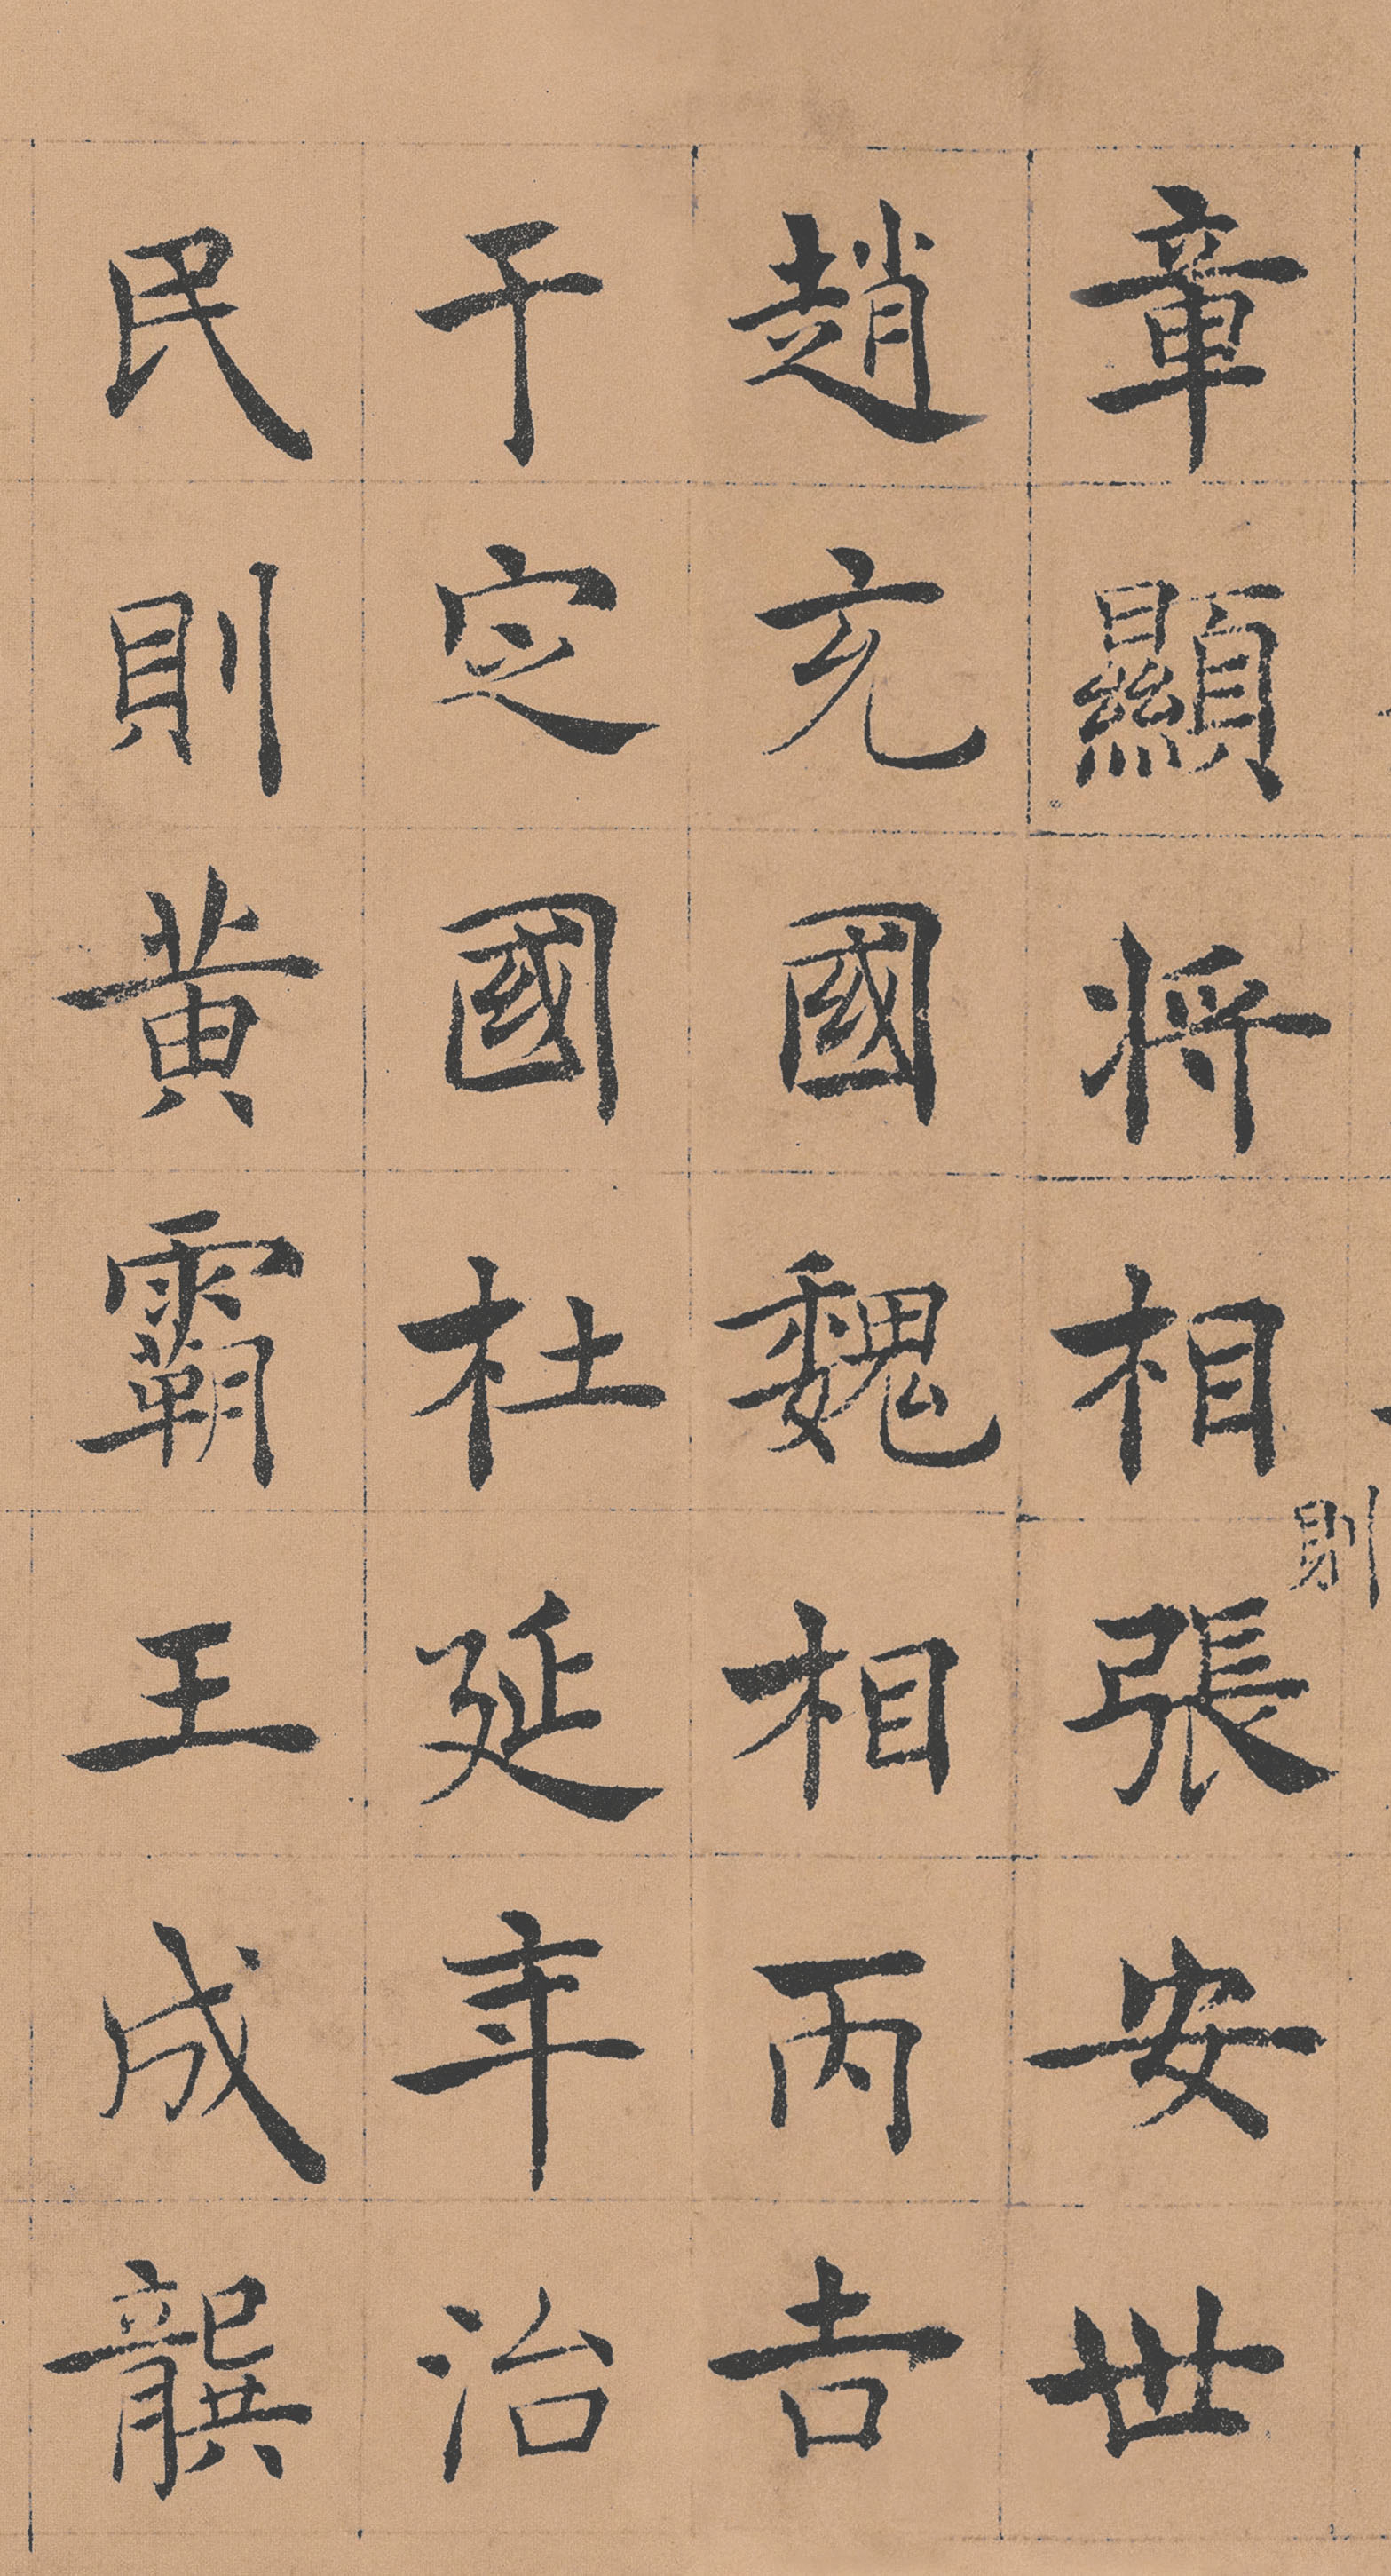 章顯將相張安世
則
趙充國魏相丙吉
于定國杜延年治
民則黃霸王成龔